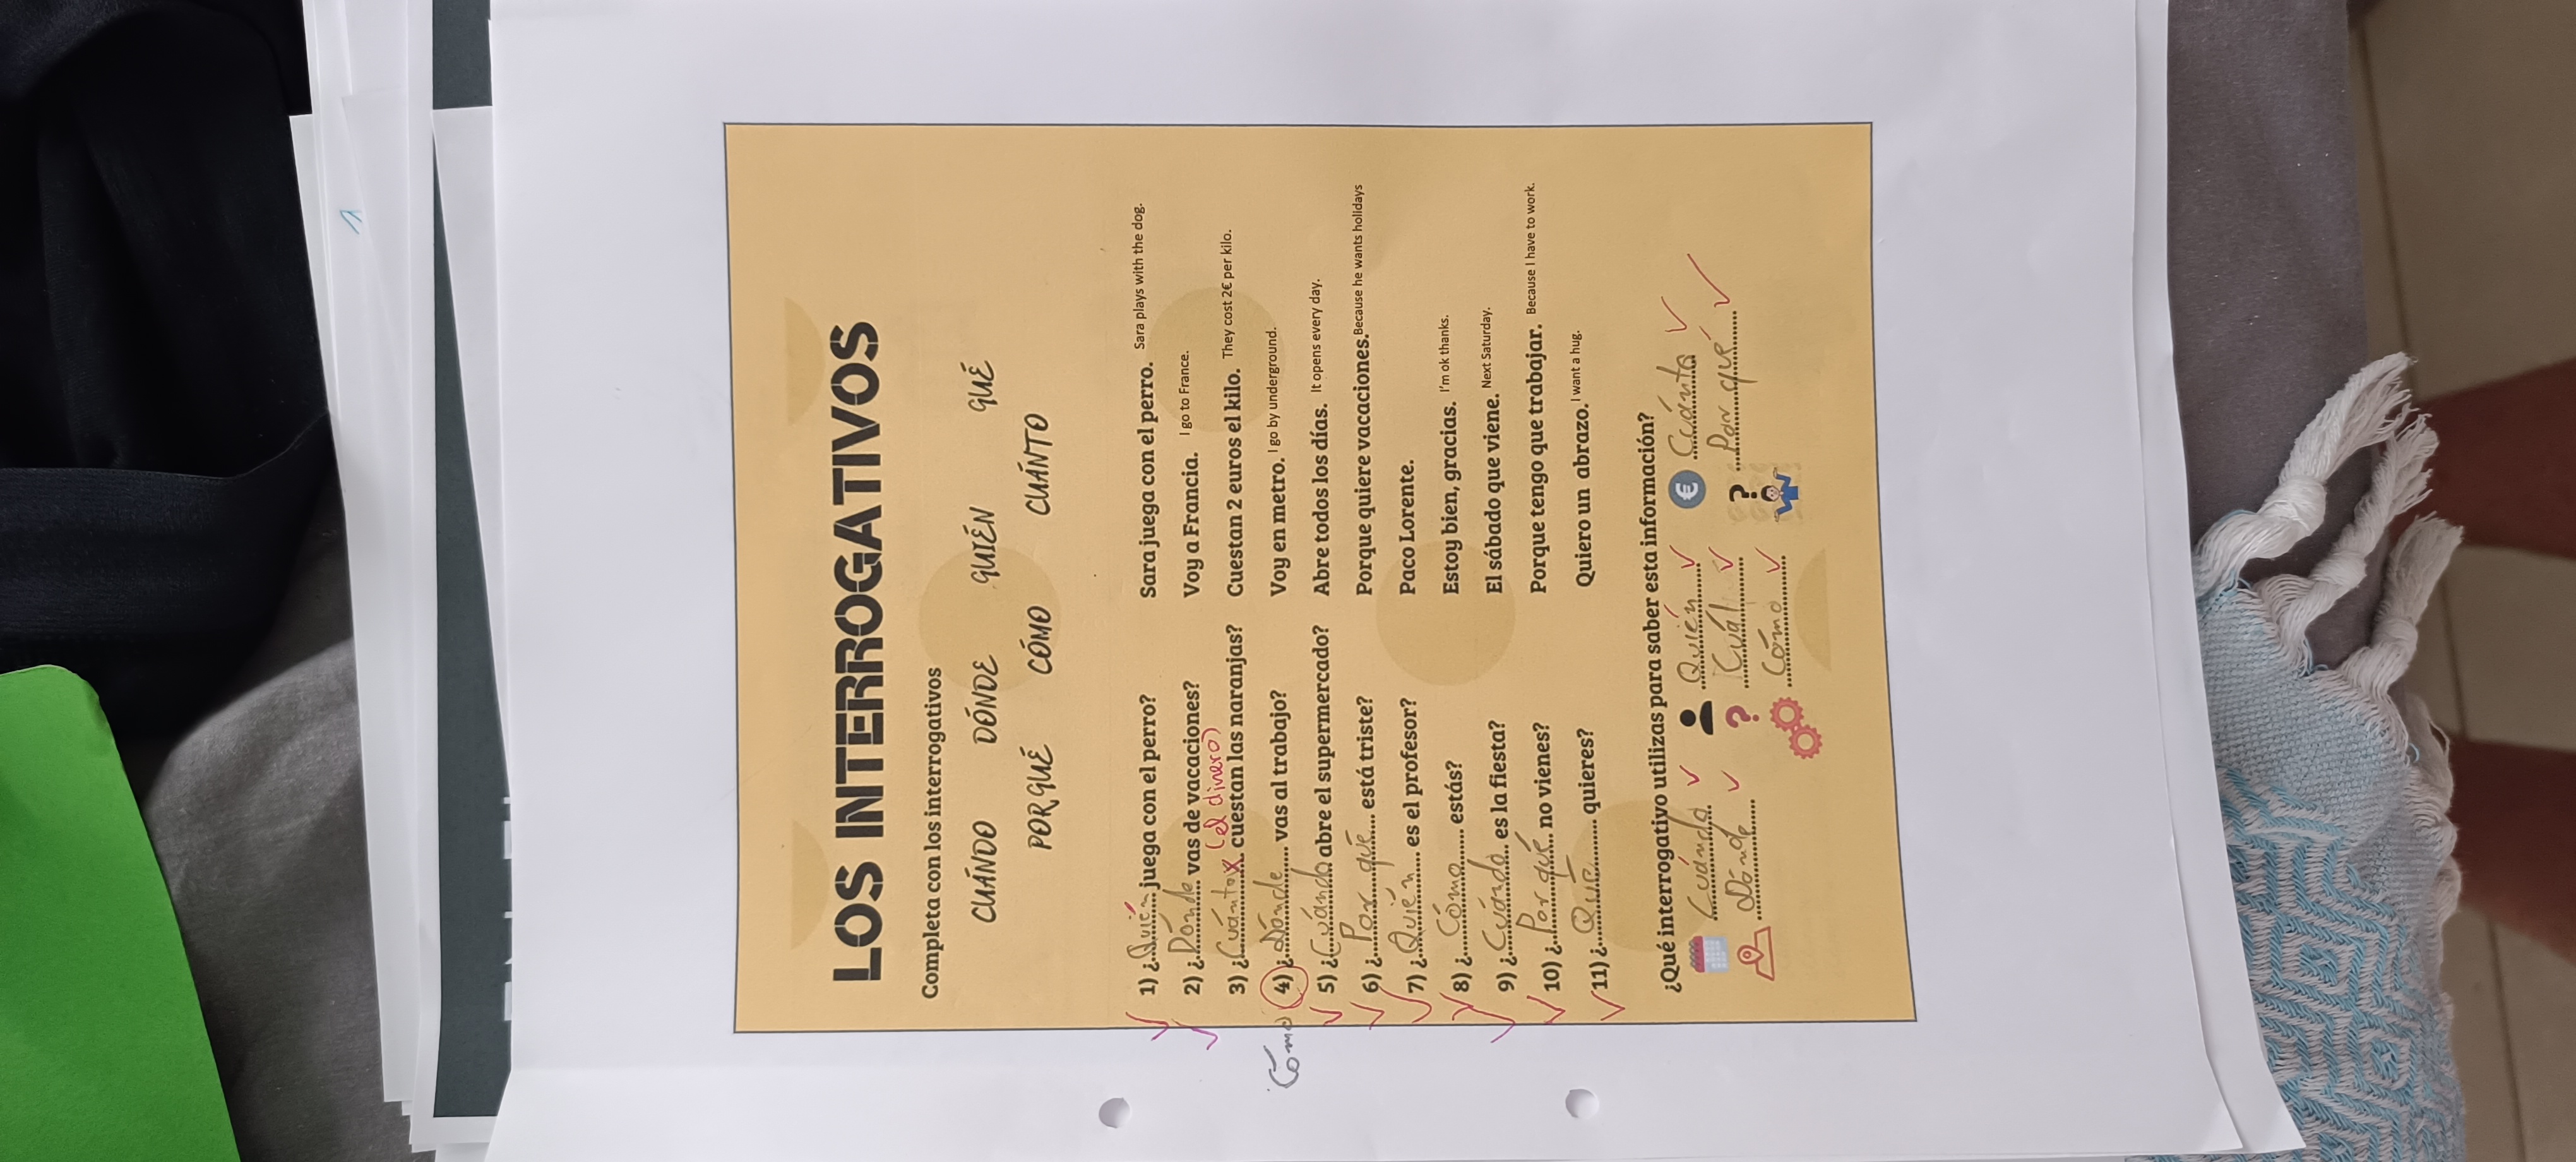 LOS INTERROGATIVOS
Completa con los interrogativos
CUÁNDO DÓNDE QUIÉN QUÉ
PORQUÉ CÓMO CUÁNTO
1) ¿Quién juega con el perro? Sara juega con el perro. Sara plays with the dog.
2) ¿Dónde vas de vacaciones? Voy a Francia. I go to France.
(el dinero)
3) ¿Cuánto cuestan las naranjas? Cuestan 2 euros el kilo. They cost 2€ per kilo.
Cómo 4) ¿Dónde vas al trabajo? Voy en metro. I go by underground.
5) ¿Cuándo abre el supermercado? Abre todos los días. It opens every day.
6) ¿Por qué está triste? Porque quiere vacaciones. Because he wants holidays
7) ¿Quién es el profesor? Paco Lorente.
8) ¿Cómo estás? Estoy bien, gracias. I'm ok thanks.
9) ¿Cuándo es la fiesta? El sábado que viene. Next Saturday.
10) ¿Por qué no vienes? Porque tengo que trabajar. Because I have to work.
11) ¿Qué quieres? Quiero un abrazo. I want a hug.
¿Qué interrogativo utilizas para saber esta información?
Cuándo Quién € Cuánto
Dónde ? Cuál ? Por qué
Cómo